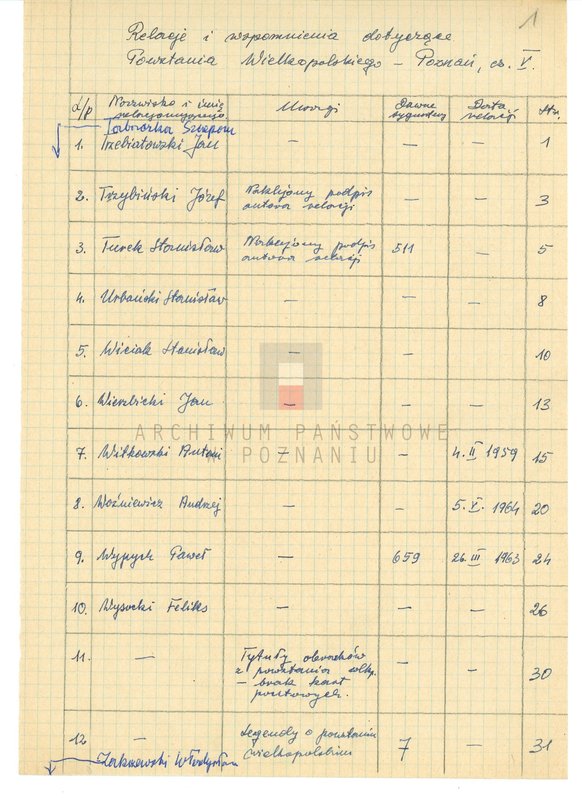 1
Relacje i wspomnienia dotyczące
Powstania Wielkopolskiego – Poznań, cz. V.
L/p Nazwisko i imię relacjonującego Uwagi Dawne sygnatury Data relacji Str.
Tabaczka Szczepan
1. Trzebiatowski Jan — — — 1
2. Trzybiński Józef Naklejony podpis autora relacji — — 3
3. Turek Stanisław Naklejony podpis autora relacji 511 — 5
4. Urbański Stanisław — — — 8
5. Wiciak Stanisław — — 10
6. Wierzbicki Jan — — — 13
ARCHIWUM PAŃSTWOWE
W POZNANIU
7. Witkowski Antoni — — 4. II 1959 15
8. Woźniewicz Andrzej — — 5. V. 1964 20
9. Wypych Paweł — 659 26. III 1963 24
10. Wysocki Feliks — — — 26
11. — Tytuły obrazków
z powstania wlkp.
– brak kart
pocztowych. — — 30
12 — Legendy o powstaniu
wielkopolskim 7 — 31
Zakrzewski Władysław